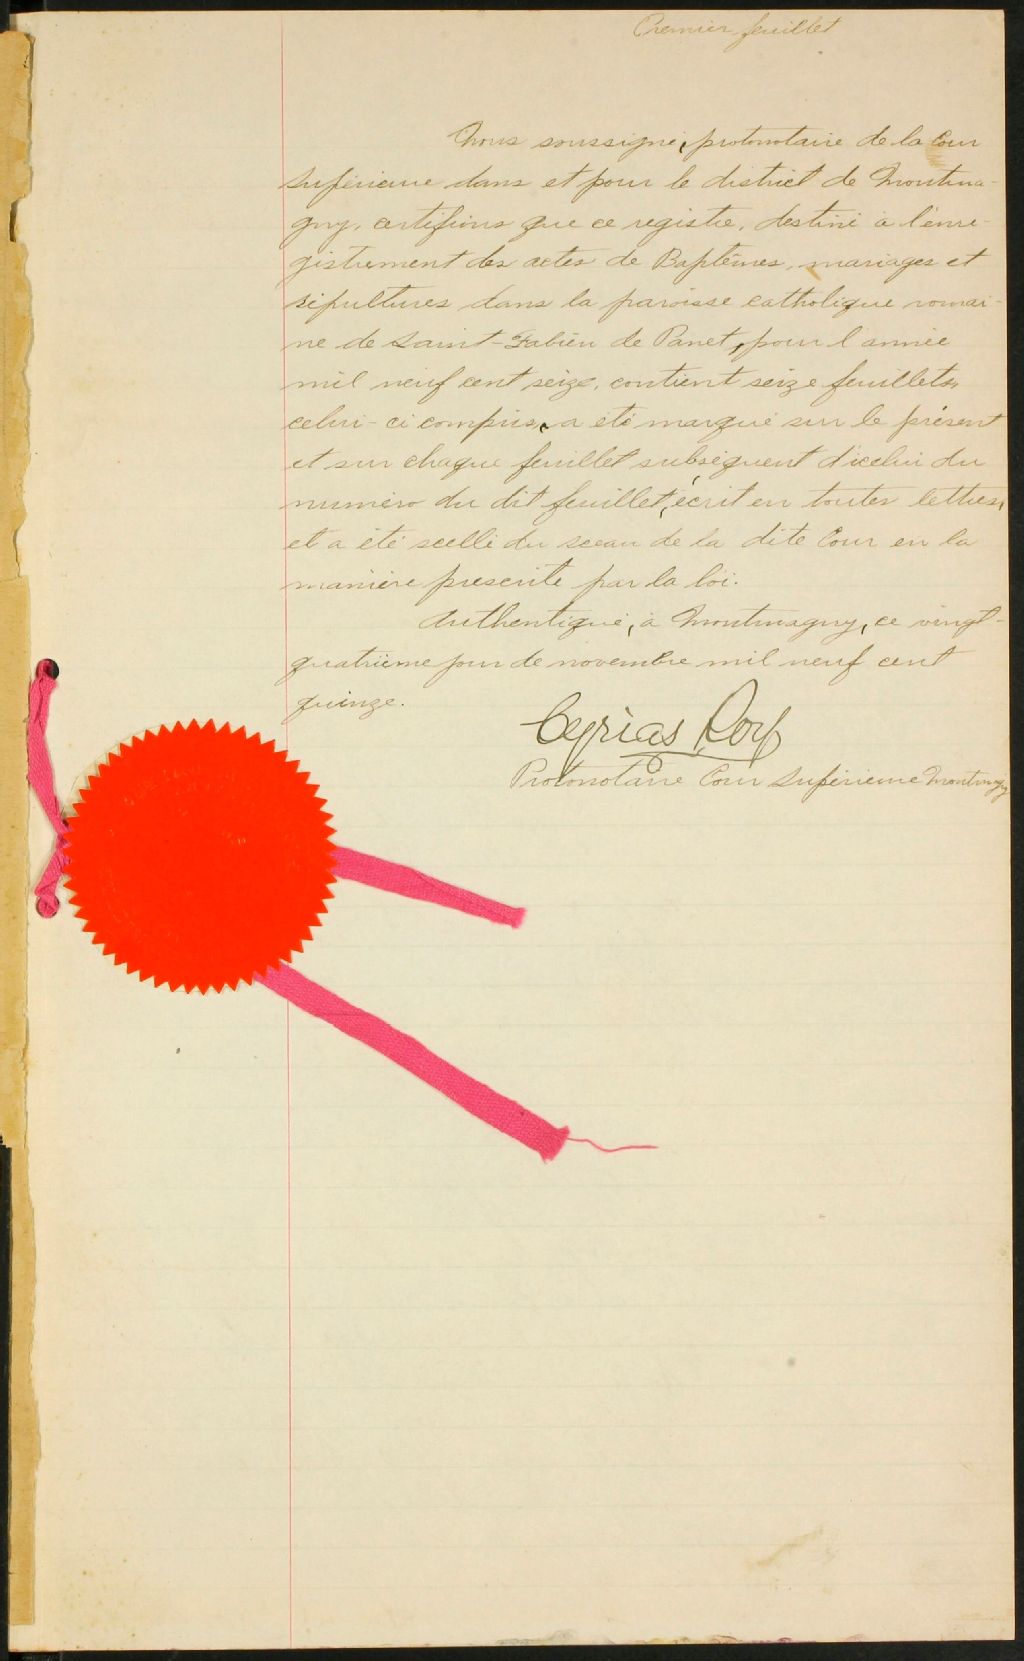 Premier feuillet
Nous soussigné, protonotaire de la Cour
Supérieure dans et pour le district de Montma-
gny, certifions que ce registre, destiné à l'enre-
gistrement des actes de Baptêmes, mariages et
sépultures dans la paroisse catholique romai-
ne de Saint-Fabien de Panet, pour l'année
mil neuf cent seize, contient seize feuillets,
celui-ci compris, a été marqué sur le présent
et sur chaque feuillet subséquent d'icelui du
numéro du dit feuillet, écrit en toutes lettres,
et a été scellé du sceau de la dite Cour en la
manière prescrite par la loi.
Authentiqué, à Montmagny, ce vingt-
quatrième jour de novembre mil neuf cent
quinze.
Cyrias Roy
Protonotaire Cour Supérieure Montmagny